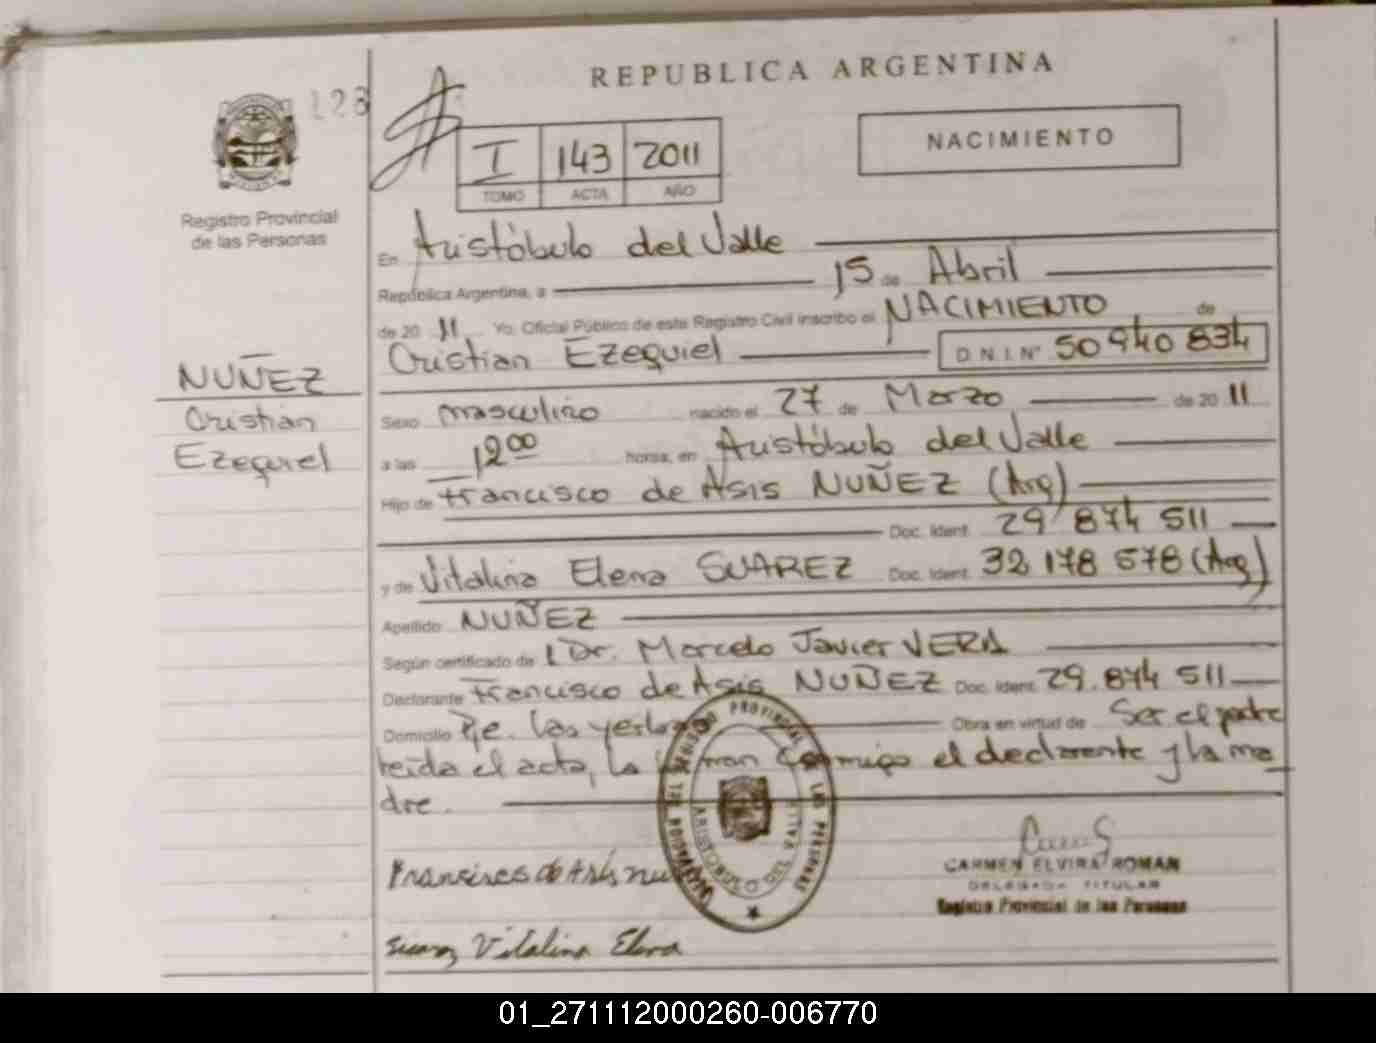 REPUBLICA ARGENTINA
128
I 143 2011
TOMO ACTA AÑO
NACIMIENTO
Registro Provincial
de las Personas
En Aristóbulo del Valle
República Argentina, a 15 de Abril
de 20 11 Yo, Oficial Público de este Registro Civil inscribo el NACIMIENTO de
Cristian Ezequiel D.N.I.Nº 50 940 834
NUÑEZ
Cristian
Ezequiel
Sexo masculino nacido el 27 de Marzo de 20 11
a las 12 00 horas, en Aristóbulo del Valle
Hijo de Francisco de Asis NUÑEZ (Arg)
Doc. Ident. 29 874 511
y de Vitalina Elena SUAREZ Doc. Ident. 32 178 578 (Arg)
Apellido NUÑEZ
Según certificado de Dr. Marcelo Javier VERA
Declarante Francisco de Asis NUÑEZ Doc. Ident. 29.874 511
Domicilio Pje. Las yerbas Obra en virtud de Ser el padre
leída el acta, la firman conmigo el declarante y la ma
dre.
REGISTRO PROVINCIAL DE LAS PERSONAS
ARISTOBULO DEL VALLE
CARMEN ELVIRA ROMAN
DELEGADA TITULAR
Registro Provincial de las Personas
Francisco de Asis
Suarez Vitalina Elena
01_271112000260-006770